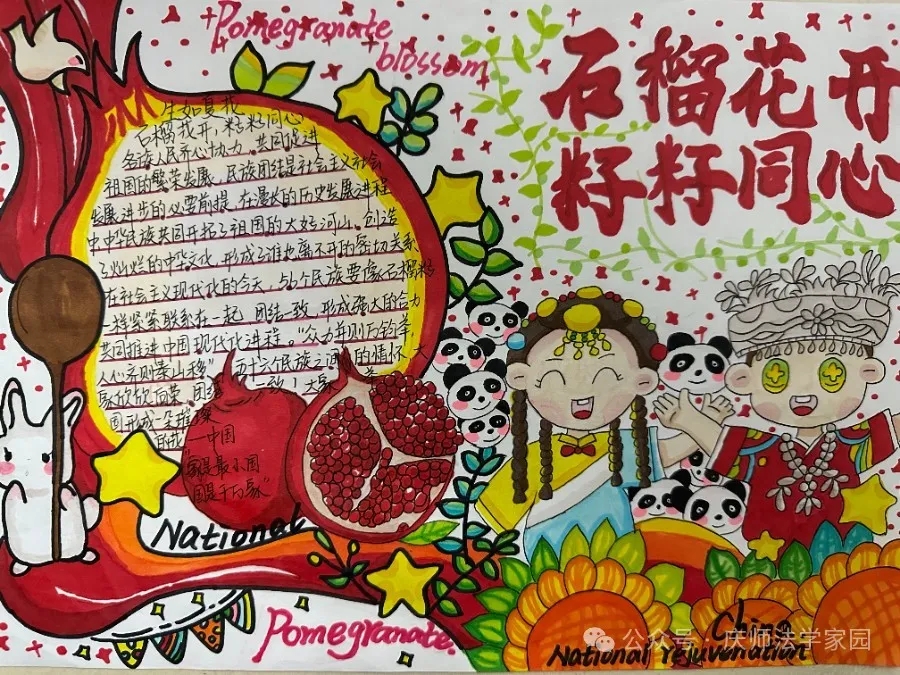 Pomegranate
blossom
石榴花开
籽籽同心
生如夏花
石榴花开，籽籽同心
各族人民齐心协力，共同促进
祖国的繁荣发展，民族团结是社会主义社会
发展进步的必要前提，在漫长的历史发展进程
中中华民族共同开拓了祖国的大好河山，创造
了灿烂的中华文化，形成了谁也离不开的密切关系
在社会主义现代化的今天，56个民族要像石榴籽
一样紧紧联系在一起，团结一致，形成强大的合力
共同推进中国现代化进程。“众力并则万钧举
人心齐则泰山移”，五十六个民族之间的情怀
欣欣向荣，团
国形成一朵璀璨
的花——中国
“家是最小国
国是千万家”
National
Pomegranate
China
National rejuvenation
公众号·庆师法学家园